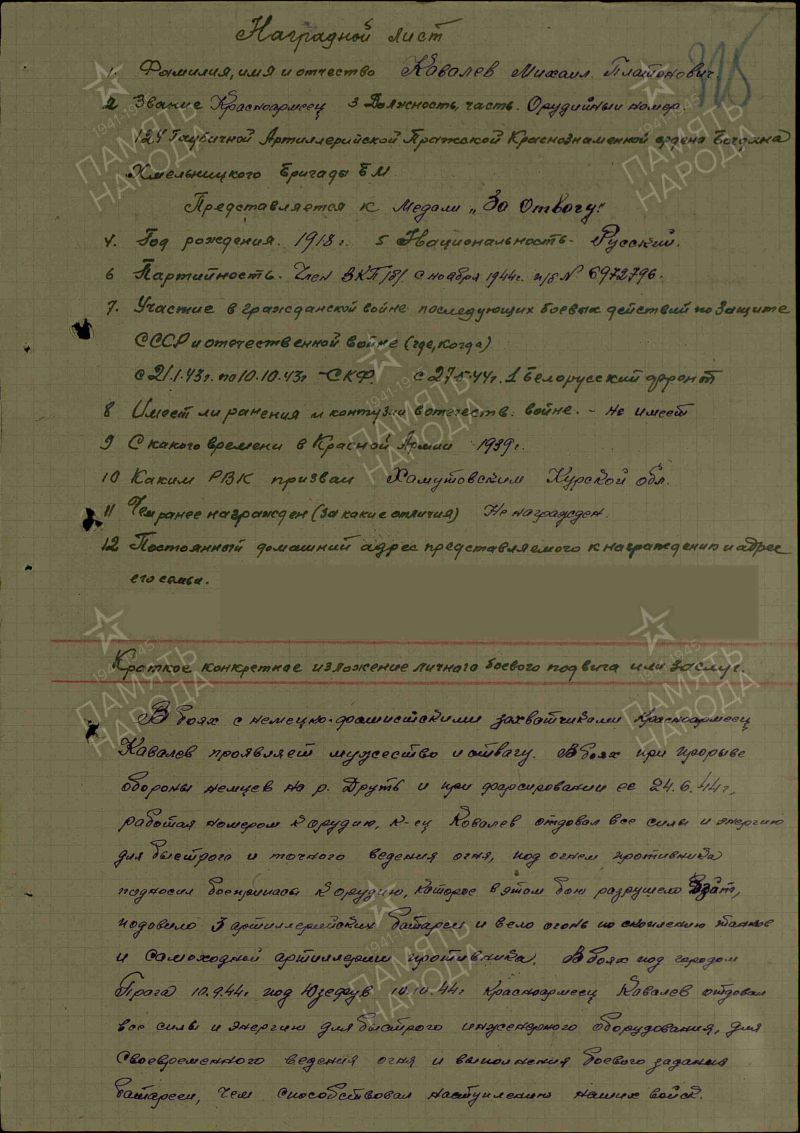 Наградной лист
325
1. Фамилия, имя и отчество Кавалев Михаил Платонович.
2 Звание Красноармеец 3 Должность, часть. Орудийный номер.
124 Гаубичной Артиллерийской Пражской Краснознаменной ордена Богдана
Хмельницкого бригады БМ
Представляется к медали „За Отвагу"
4. Год рождения. 1918 г. 5 Национальность - Русский.
6 Партийность. Член ВКП/б/. с ноября 1944г. п/б № 6972796.
7. Участие в гражданской войне последующих боевых действий по защите
СССР и отечественной войне (где, когда)
с 21.1.43г. по 10.10.43г - СКФ. с 27.5.44г. 1 Белорусский фронт
8 Имеет ли ранения и контузии в отечеств. войне. - Не имеет
9 С какого времени в Красной Армии 1939г.
10 Каким РВК призван Хамутовским Курской обл.
11 Чем ранее награжден (за какие отличия) Не награжден.
12 Постоянный домашний адрес представляемого к награждению и адрес
его семьи.
Краткое конкретное изложение личного боевого подвига или заслуг.
В боях с немецко-фашистскими захватчиками Красноармеец
Кавалев проявляет мужество и отвагу. В боях при прорыве
обороны немцев на р. Друть и при форсировании ее 24.6.44г,
работая номером к орудию, к-ец Ковалев отдавал все силы и энергию
для быстрого и точного ведения огня, под огнем противника
подносил боеприпасы к орудию, которое в этом бою разрушело
подовило 3 артиллерийских батареи и вело огонь по скоплению танков
и самоходной артиллерии противника. В боях под городом
Прага 10.9.44г под Юзефув 10.10.44г Красноармеец Кавалев отдавал
все силы и энергию для быстрого инженерного оборудования, для
своевременного ведения огня и выполнения боевого задания
батареей, чем способствовал наступлению наших войск.
ПАМЯТЬ НАРОДА
1941-1945